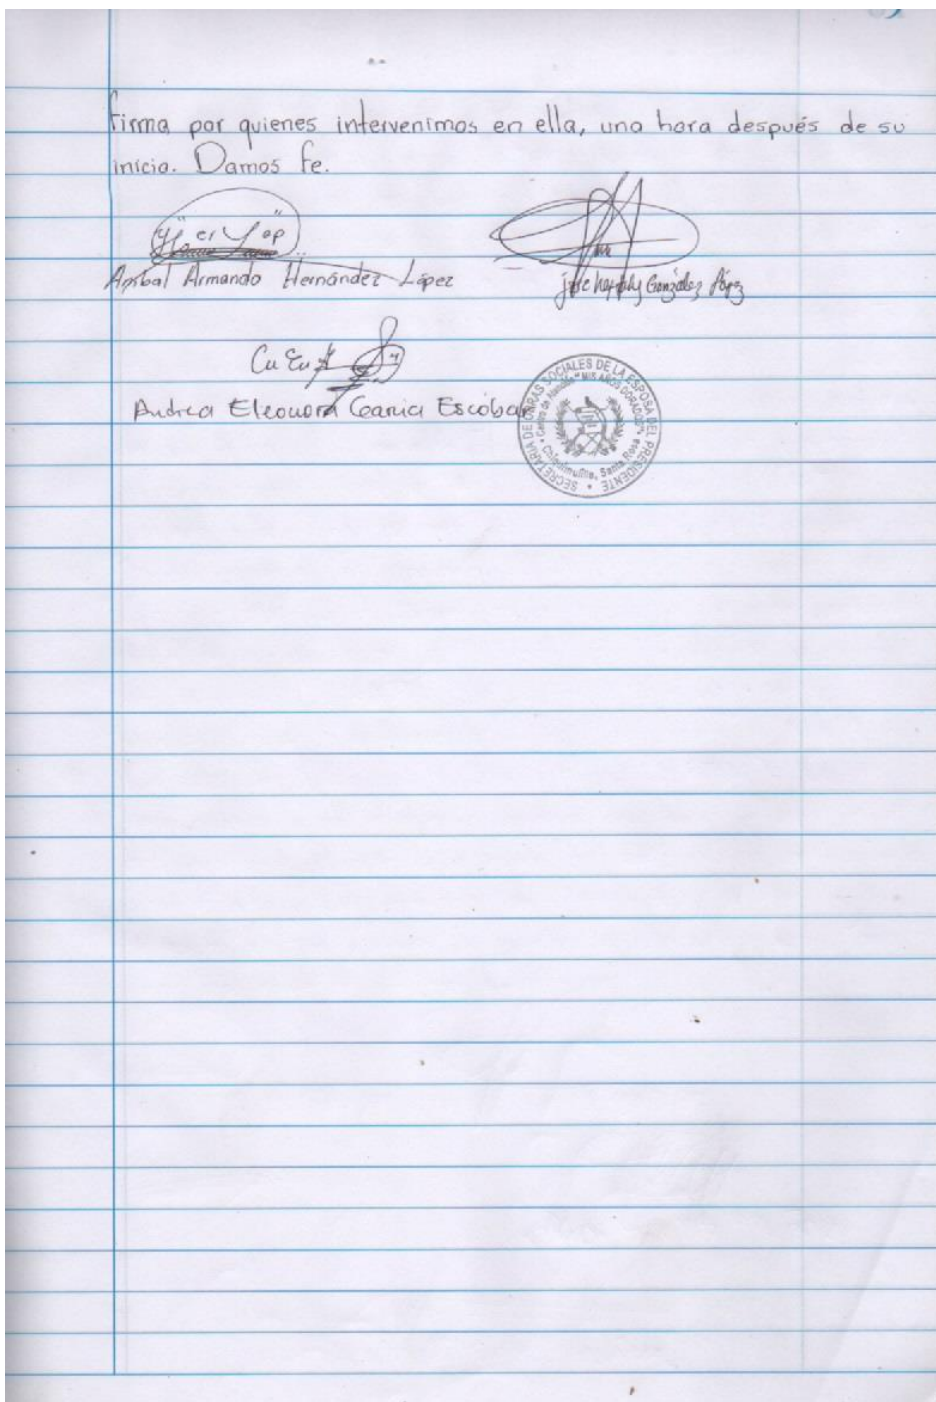 firma por quienes intervenimos en ella, una hora después de su
inicio. Damos fe.
Aníbal Armando Hernández López
José González López
Andrea Eleonora García Escobar
SECRETARIA DE OBRAS SOCIALES DE LA ESPOSA DEL PRESIDENTE
Centro de Atención "MIS AÑOS DORADOS"
Chiquimulilla, Santa Rosa